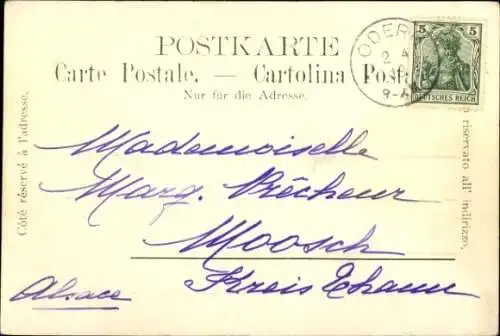 POSTKARTE
Carte Postale. — Cartolina Posta
Nur für die Adresse.
Côté réservé à l'adresse.
riservato all' indirizzo.
ODER
2 4
9-
5 5
DEUTSCHES REICH
Mademoiselle
Marg. Rêcheur
Moosch
Kreis Thann
Alsace